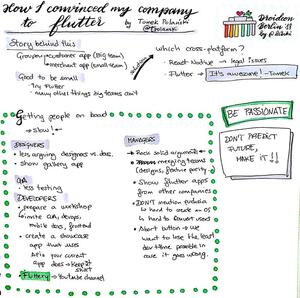 How I convinced my company
to flutter
by Tomek Polański
Droidcon
Berlin '18
Story behind this
Groupon
customer app (big team)
merchant app (small team)
Good to be small
Try flutter
many other things big teams can't
which cross-platform?
React Native → legal issues
Flutter → It's awesome! - Tomek
Getting people on board
→ slow!
BE PASSIONATE
DON'T PREDICT
FUTURE,
MAKE IT!!
DESIGNERS
less arguing designers vs. devs.
show gallery app
QA
less testing
DEVELOPERS
prepare a workshop
invite
devops,
mobile devs, frontend
create a showcase
app that uses
APIs your current
app does → keep it
short
Flutter → Youtube channel
MANAGERS
Rock solid arguments
merging teams
(designs, feature parity)
Show flutter apps
from other companies
DON'T mention fuchsia
hard to create OS
hard to convert users
Abort button → we
want to use the least
dev time possible in
case it goes wrong.